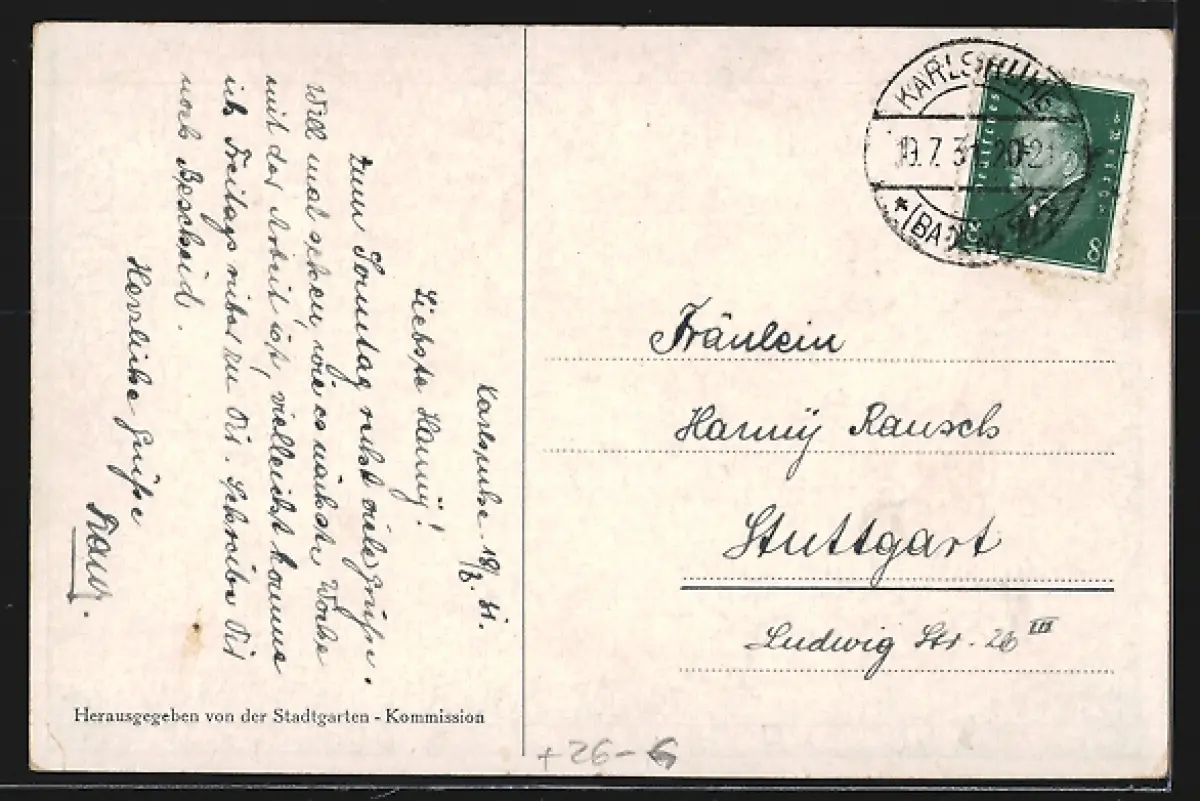 Karlsruhe 18/7. 31.
Liebste Hanny!
Zum Sonntag recht viele Grüsse.
Will mal sehen, wie es nächste Woche
mit der Arbeit ist, vielleicht komme
ich Freitags rüber zu Dir. Schreibe Dir
noch Bescheid.
Herzliche Grüsse
Herausgegeben von der Stadtgarten - Kommission
KARLSRUHE
19.7.31. 20-21
* (BADEN)
Deutsches Reich
8
Fräulein
Hanny Rausch
Stuttgart
Ludwig Str. 26 III
+26-